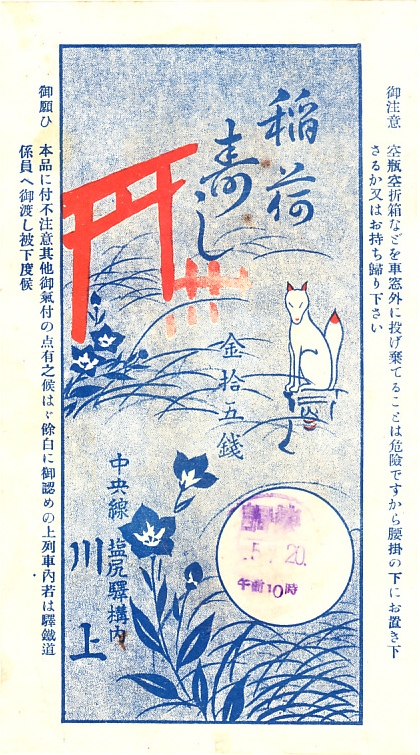 御注意 空瓶空折箱などを車窓外に投げ棄てることは危險ですから腰掛の下にお置き下
さるか又はお持ち歸り下さい
稲荷
寿し
金拾五錢
中央線 塩尻驛構内
川上
5 7 20.
午前10時
御願ひ 本品に付不注意其他御氣付の点有之候はゞ餘白に御認めの上列車内若は驛鐵道
係員へ御渡し被下度候